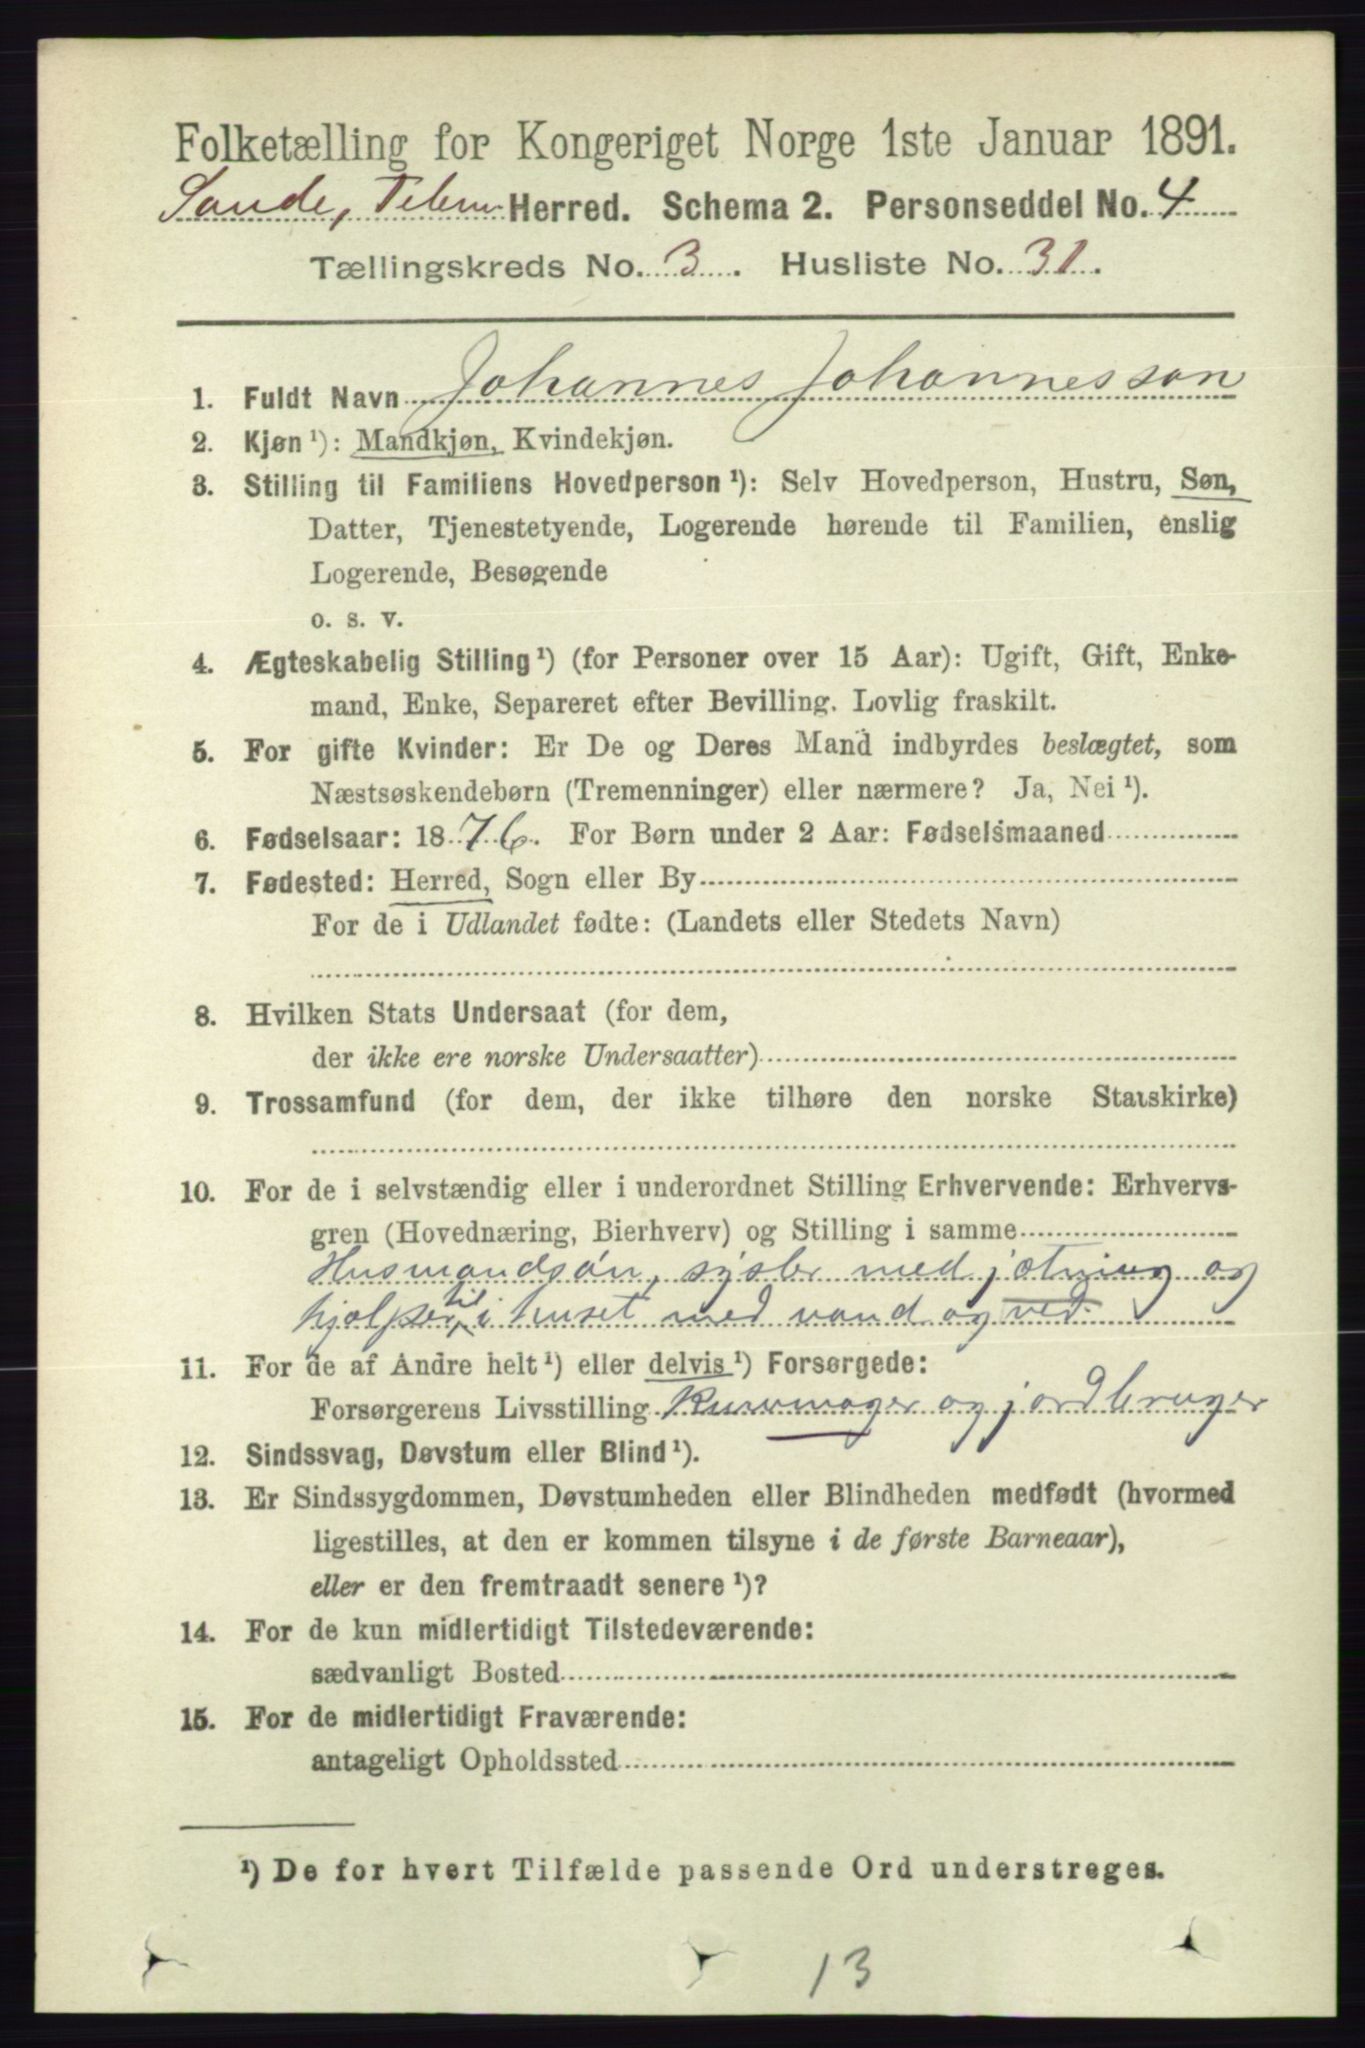 Folketælling for Kongeriget Norge 1ste Januar 1891.
Saude, Telem. Herred. Schema 2. Personseddel No. 4
Tællingskreds No. 3. Husliste No. 31.
1. Fuldt Navn Johannes Johannesson
2. Kjøn¹): Mandkjøn, Kvindekjøn.
3. Stilling til Familiens Hovedperson¹): Selv Hovedperson, Hustru, Søn,
Datter, Tjenestetyende, Logerende hørende til Familien, enslig
Logerende, Besøgende
o. s. v.
4. Ægteskabelig Stilling¹) (for Personer over 15 Aar): Ugift, Gift, Enke-
mand, Enke, Separeret efter Bevilling. Lovlig fraskilt.
5. For gifte Kvinder: Er De og Deres Mand indbyrdes beslægtet, som
Næstsøskendebørn (Tremenninger) eller nærmere? Ja, Nei¹).
6. Fødselsaar: 1876. For Børn under 2 Aar: Fødselsmaaned
7. Fødested: Herred, Sogn eller By
For de i Udlandet fødte: (Landets eller Stedets Navn)
8. Hvilken Stats Undersaat (for dem,
der ikke ere norske Undersaatter)
9. Trossamfund (for dem, der ikke tilhøre den norske Statskirke)
10. For de i selvstændig eller i underordnet Stilling Erhvervende: Erhvervs-
gren (Hovednæring, Bierhverv) og Stilling i samme
Husmandsøn, sysler med jætning og
hjælper til i huset med vand og ved.
11. For de af Andre helt¹) eller delvis¹) Forsørgede:
Forsørgerens Livsstilling Kurvmager og jordbruger
12. Sindssvag, Døvstum eller Blind¹).
13. Er Sindssygdommen, Døvstumheden eller Blindheden medfødt (hvormed
ligestilles, at den er kommen tilsyne i de første Barneaar),
eller er den fremtraadt senere¹)?
14. For de kun midlertidigt Tilstedeværende:
sædvanligt Bosted
15. For de midlertidigt Fraværende:
antageligt Opholdssted
¹) De for hvert Tilfælde passende Ord understreges.
13